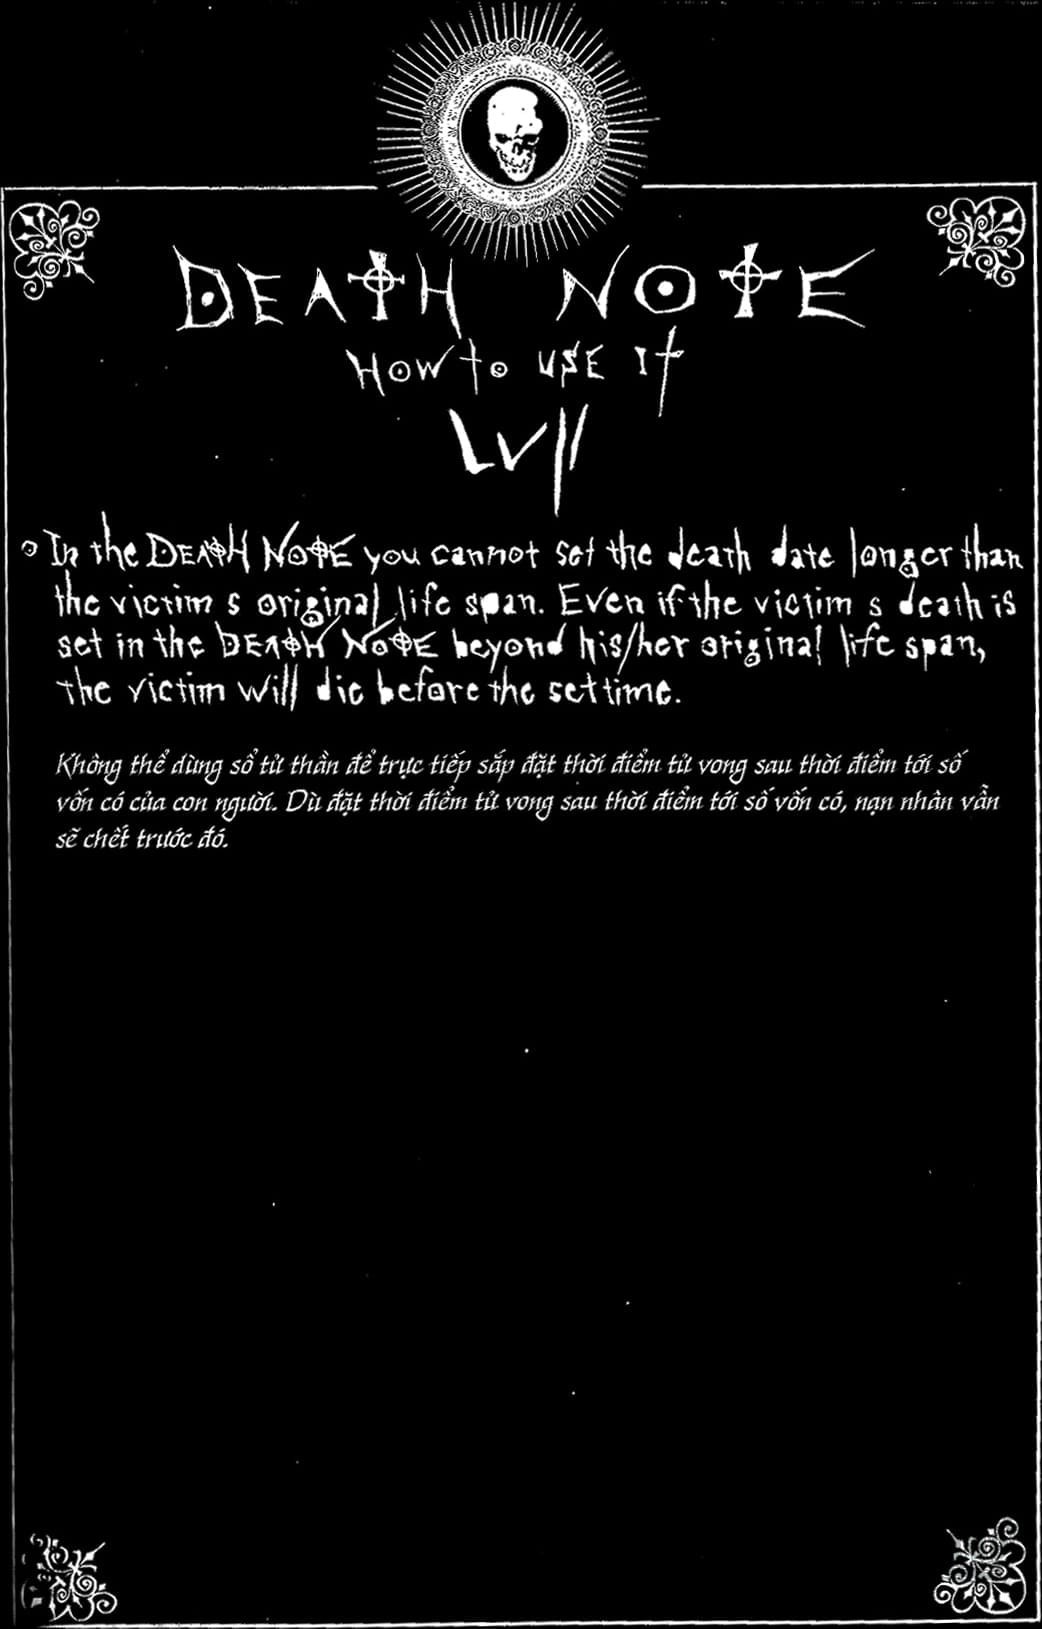 DEATH NOTE
HOW to USE It
LVII
In the DEATH NOTE you cannot set the death date longer than
the victim s original life span. Even if the victim s death is
set in the DEATH NOTE beyond his/her original life span,
the victim will die before the set time.
Không thể dùng sổ tử thần để trực tiếp sắp đặt thời điểm tử vong sau thời điểm tới số
vốn có của con người. Dù đặt thời điểm tử vong sau thời điểm tới số vốn có, nạn nhân vẫn
sẽ chết trước đó.